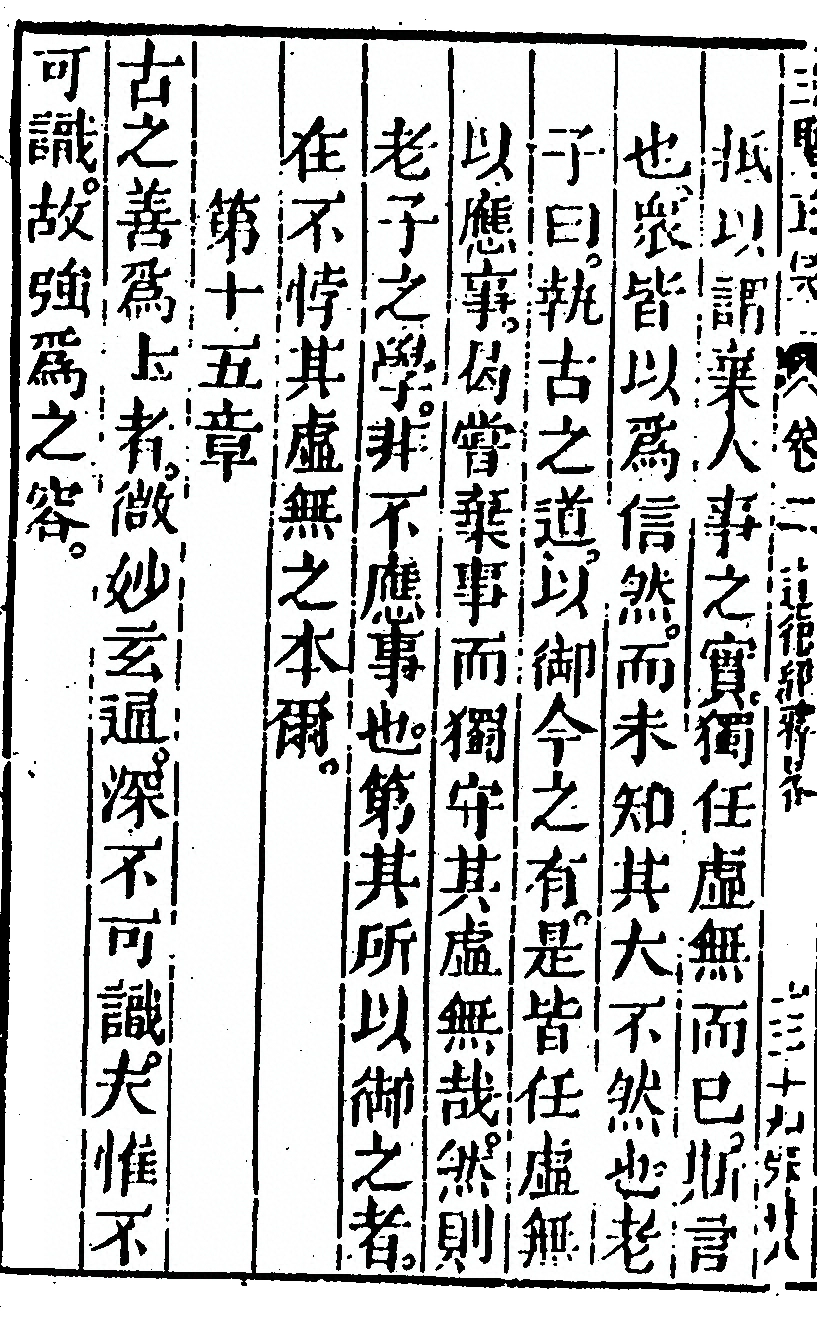 抵以謂棄人事之實獨任虛無而已斯言
也衆皆以爲信然而未知其大不然也老
子曰執古之道以御今之有是皆任虛無
以應事。曷嘗棄事而獨守其虛無哉。然則
老子之學。非不應事也。第其所以御之者。
在不悖其虛無之本爾。
第十五章
古之善爲上者。微妙玄通。深不可識。夫惟不
可識。故強爲之容。